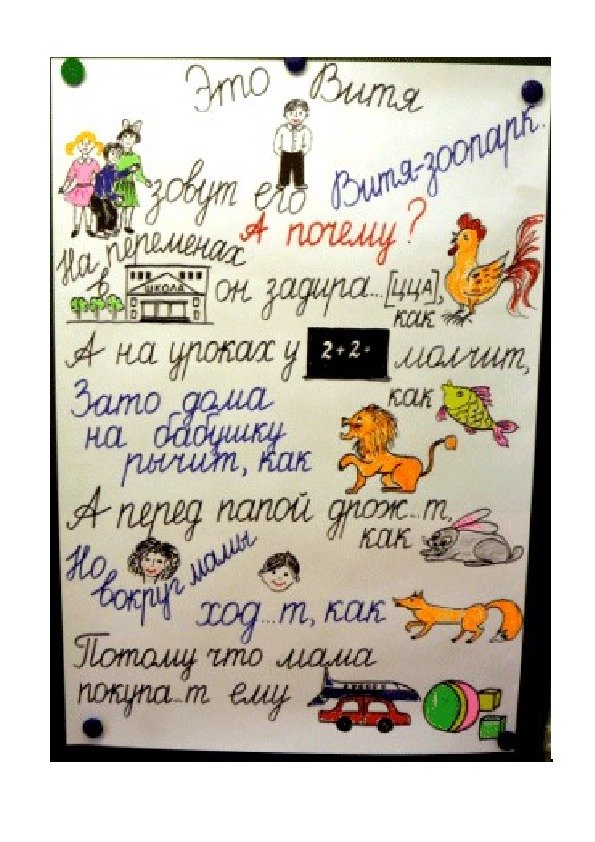 Это Витя
зовут его Витя-зоопарк.
А почему?
На переменах
в ШКОЛА он задира...[цца],
как
А на уроках у 2+2= молчит,
как
Зато дома
на бабушку
рычит, как
А перед папой дрож...т,
как
Но вокруг мамы
ход...т, как
Потому что мама
покупа...т ему